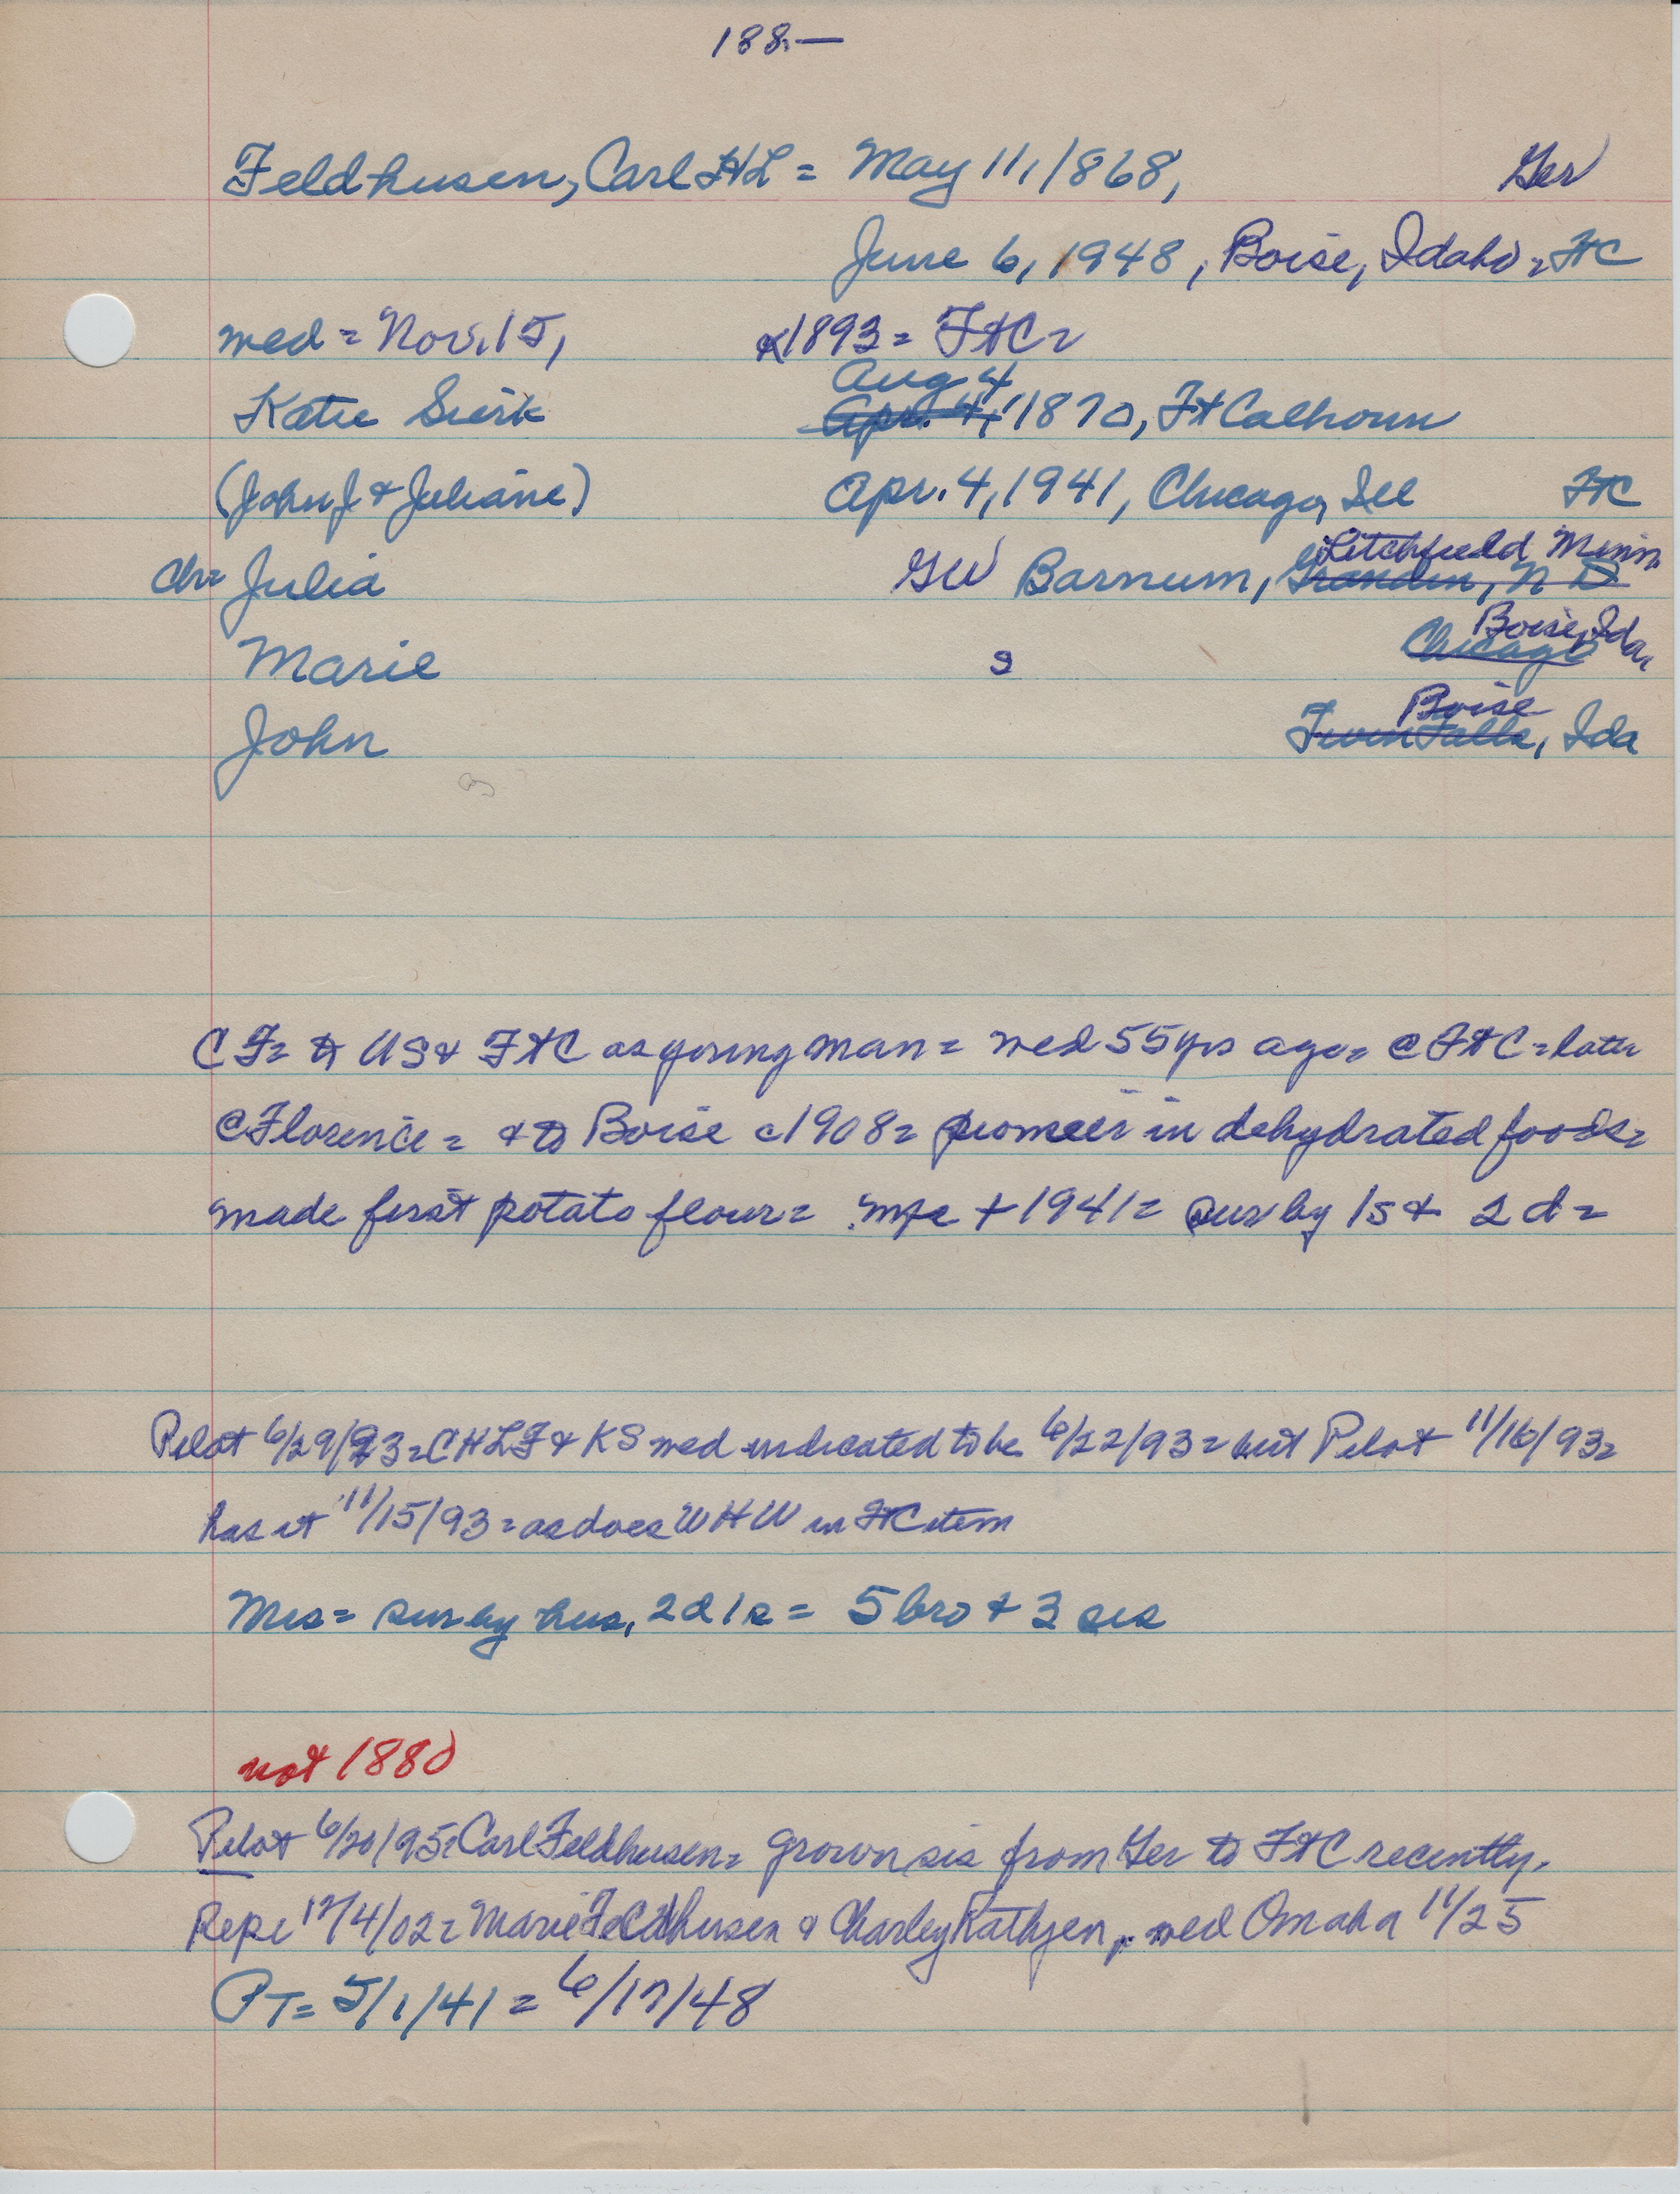 188.—
Feldhusen, Carl HL = May 11, 1868, Ger
June 6, 1948, Boise, Idaho = FtC
wed = Nov. 15, 1893 = FtC =
Aug 4
Katie Sierk Apr. 4, 1870, Ft Calhoun
(John J & Juliane) Apr. 4, 1941, Chicago, Ill FtC
Litchfield Minn
Ch = Julia GW Barnum, Grandin, N D
Boise, Ida
Marie s Chicago
Boise
John Twin Falls, Ida
CF = to US & FtC as young man = wed 55 yrs ago = @ FtC = later
@ Florence = & to Boise c1908 = pioneer in dehydrated foods =
made first potato flour = + 1941 = sur by 1s & 2d =
Pilot 6/29/93 = CHLF & KS wed indicated to be 6/22/93 = but Pilot 11/16/93 =
has it 11/15/93 = as does WHW in FtC item
Mrs = sur by hus, 2d 1s = 5 bro & 3 sis
not 1880
Pilot 6/20/95 = Carl Feldhusen = grown sis from Ger to FtC recently.
Marie Feldhusen & Charley Rathjen, wed Omaha 11/25
PT = 5/1/41 = 6/17/48